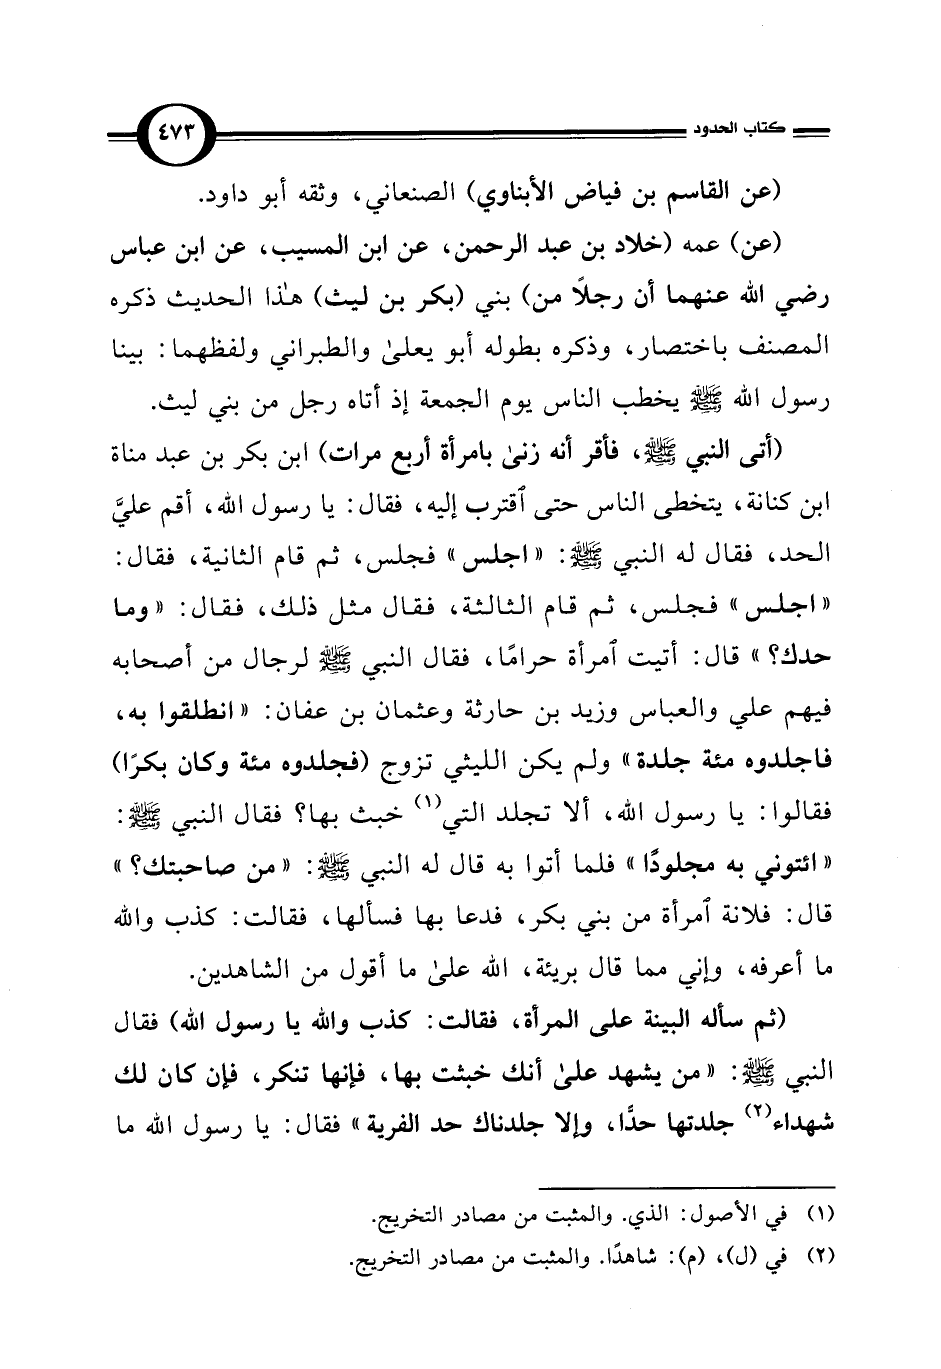 كتاب الحدود ٤٧٣
(عن القاسم بن فياض الأبناوي) الصنعاني، وثقه أبو داود.
(عن) عمه (خلاد بن عبد الرحمن، عن ابن المسيب، عن ابن عباس
رضي الله عنهما أن رجلًا من) بني (بكر بن ليث) هذا الحديث ذكره
المصنف باختصار، وذكره بطوله أبو يعلىٰ والطبراني ولفظهما: بينا
رسول الله ﷺ يخطب الناس يوم الجمعة إذ أتاه رجل من بني ليث.
(أتى النبي ﷺ، فأقر أنه زنىٰ بامرأة أربع مرات) ابن بكر بن عبد مناة
ابن كنانة، يتخطى الناس حتى ٱقترب إليه، فقال: يا رسول الله، أقم عليَّ
الحد، فقال له النبي ﷺ: «اجلس» فجلس، ثم قام الثانية، فقال:
«اجلس» فجلس، ثم قام الثالثة، فقال مثل ذلك، فقال: «وما
حدك؟» قال: أتيت ٱمرأة حرامًا، فقال النبي ﷺ لرجال من أصحابه
فيهم علي والعباس وزيد بن حارثة وعثمان بن عفان: «انطلقوا به،
فاجلدوه مئة جلدة» ولم يكن الليثي تزوج (فجلدوه مئة وكان بكرًا)
فقالوا: يا رسول الله، ألا تجلد التي(١) خبث بها؟ فقال النبي ﷺ:
«ائتوني به مجلودًا» فلما أتوا به قال له النبي ﷺ: «من صاحبتك؟»
قال: فلانة ٱمرأة من بني بكر، فدعا بها فسألها، فقالت: كذب والله
ما أعرفه، وإني مما قال بريئة، الله علىٰ ما أقول من الشاهدين.
(ثم سأله البينة على المرأة، فقالت: كذب والله يا رسول الله) فقال
النبي ﷺ: «من يشهد علىٰ أنك خبثت بها، فإنها تنكر، فإن كان لك
شهداء(٢) جلدتها حدًّا، وإلا جلدناك حد الفرية» فقال: يا رسول الله ما
(١) في الأصول: الذي. والمثبت من مصادر التخريج.
(٢) في (ل)، (م): شاهدًا. والمثبت من مصادر التخريج.